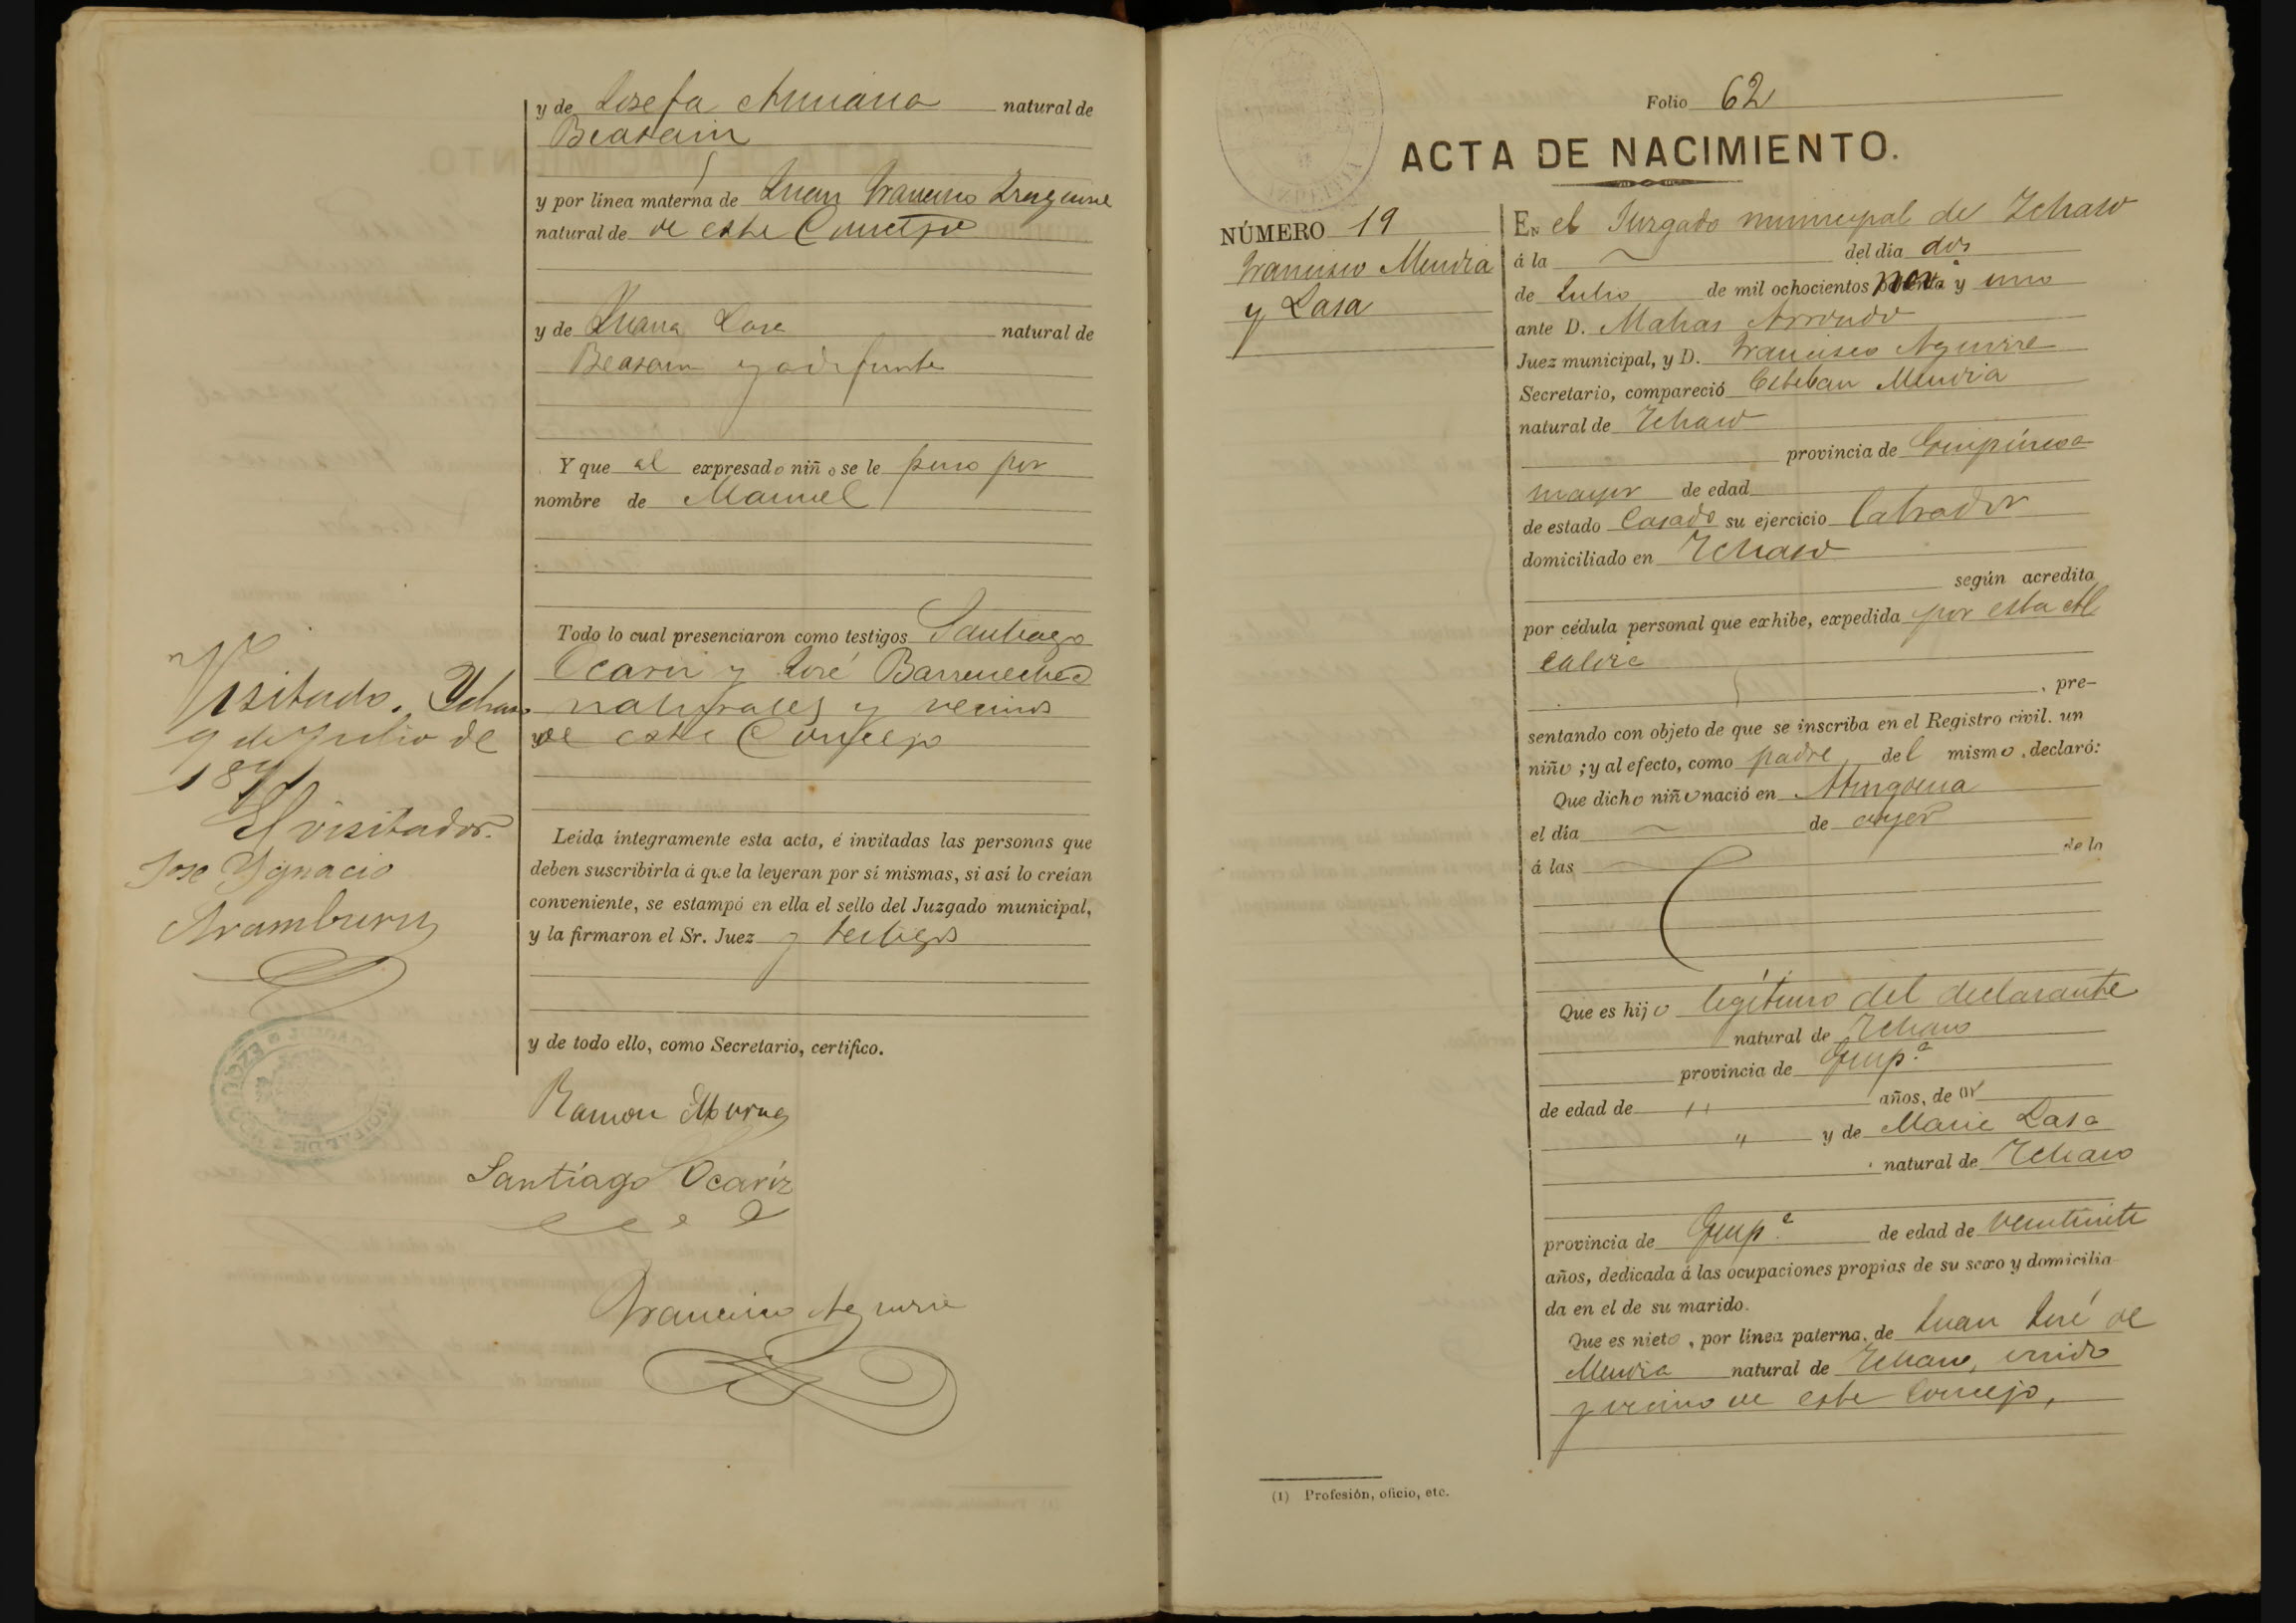 y de Josefa Amiana natural de
Beasain
y por línea materna de Juan Francisco
natural de de este Concejo
y de Juana Lasa natural de
Beasain y a difunta
Y que al expresado niño se le puso por
nombre de Manuel
Todo lo cual presenciaron como testigos Santiago
Ocariz y José Barrenechea
naturales y vecinos
de este Concejo
Leída íntegramente esta acta, é invitadas las personas que
deben suscribirla á que la leyeran por sí mismas, si así lo creían
conveniente, se estampó en ella el sello del Juzgado municipal,
y la firmaron el Sr. Juez y testigos
y de todo ello, como Secretario, certifico.
Ramon
Santiago Ocaríz
Francisco Aguirre
Visitado. Ychaso
9 de Julio de
El visitador
Jose Ygnacio
Aramburu
Folio 62
ACTA DE NACIMIENTO.
NÚMERO 19
Francisco Mendia
y Lasa
En el Juzgado municipal de Ichaso
á la del día dos
de Julio de mil ochocientos nov.ª y uno
ante D. Matias Arrondo
Juez municipal, y D. Francisco Aguirre
Secretario, compareció Esteban Mendia
natural de Ichaso
provincia de Guipúzcoa
mayor de edad
de estado Casado su ejercicio labrador
domiciliado en Ichaso
según acredita
por cédula personal que exhibe, expedida por esta Al
caldia
, pre-
sentando con objeto de que se inscriba en el Registro civil. un
niño ; y al efecto, como padre del mismo , declaró:
Que dicho niño nació en
el día de ayer
á las de la
Que es hijo legítimo del declarante
natural de Ichaso
provincia de Guip.ª
de edad de " años, de
" y de Maria Lasa
natural de Ichaso
provincia de Guip.ª de edad de veintisiete
años, dedicada á las ocupaciones propias de su sexo y domicilia-
da en el de su marido.
Que es nieto , por línea paterna, de Juan José de
Mendia natural de Ichaso, viudo
y vecino de este Concejo,
(1) Profesión, oficio, etc.